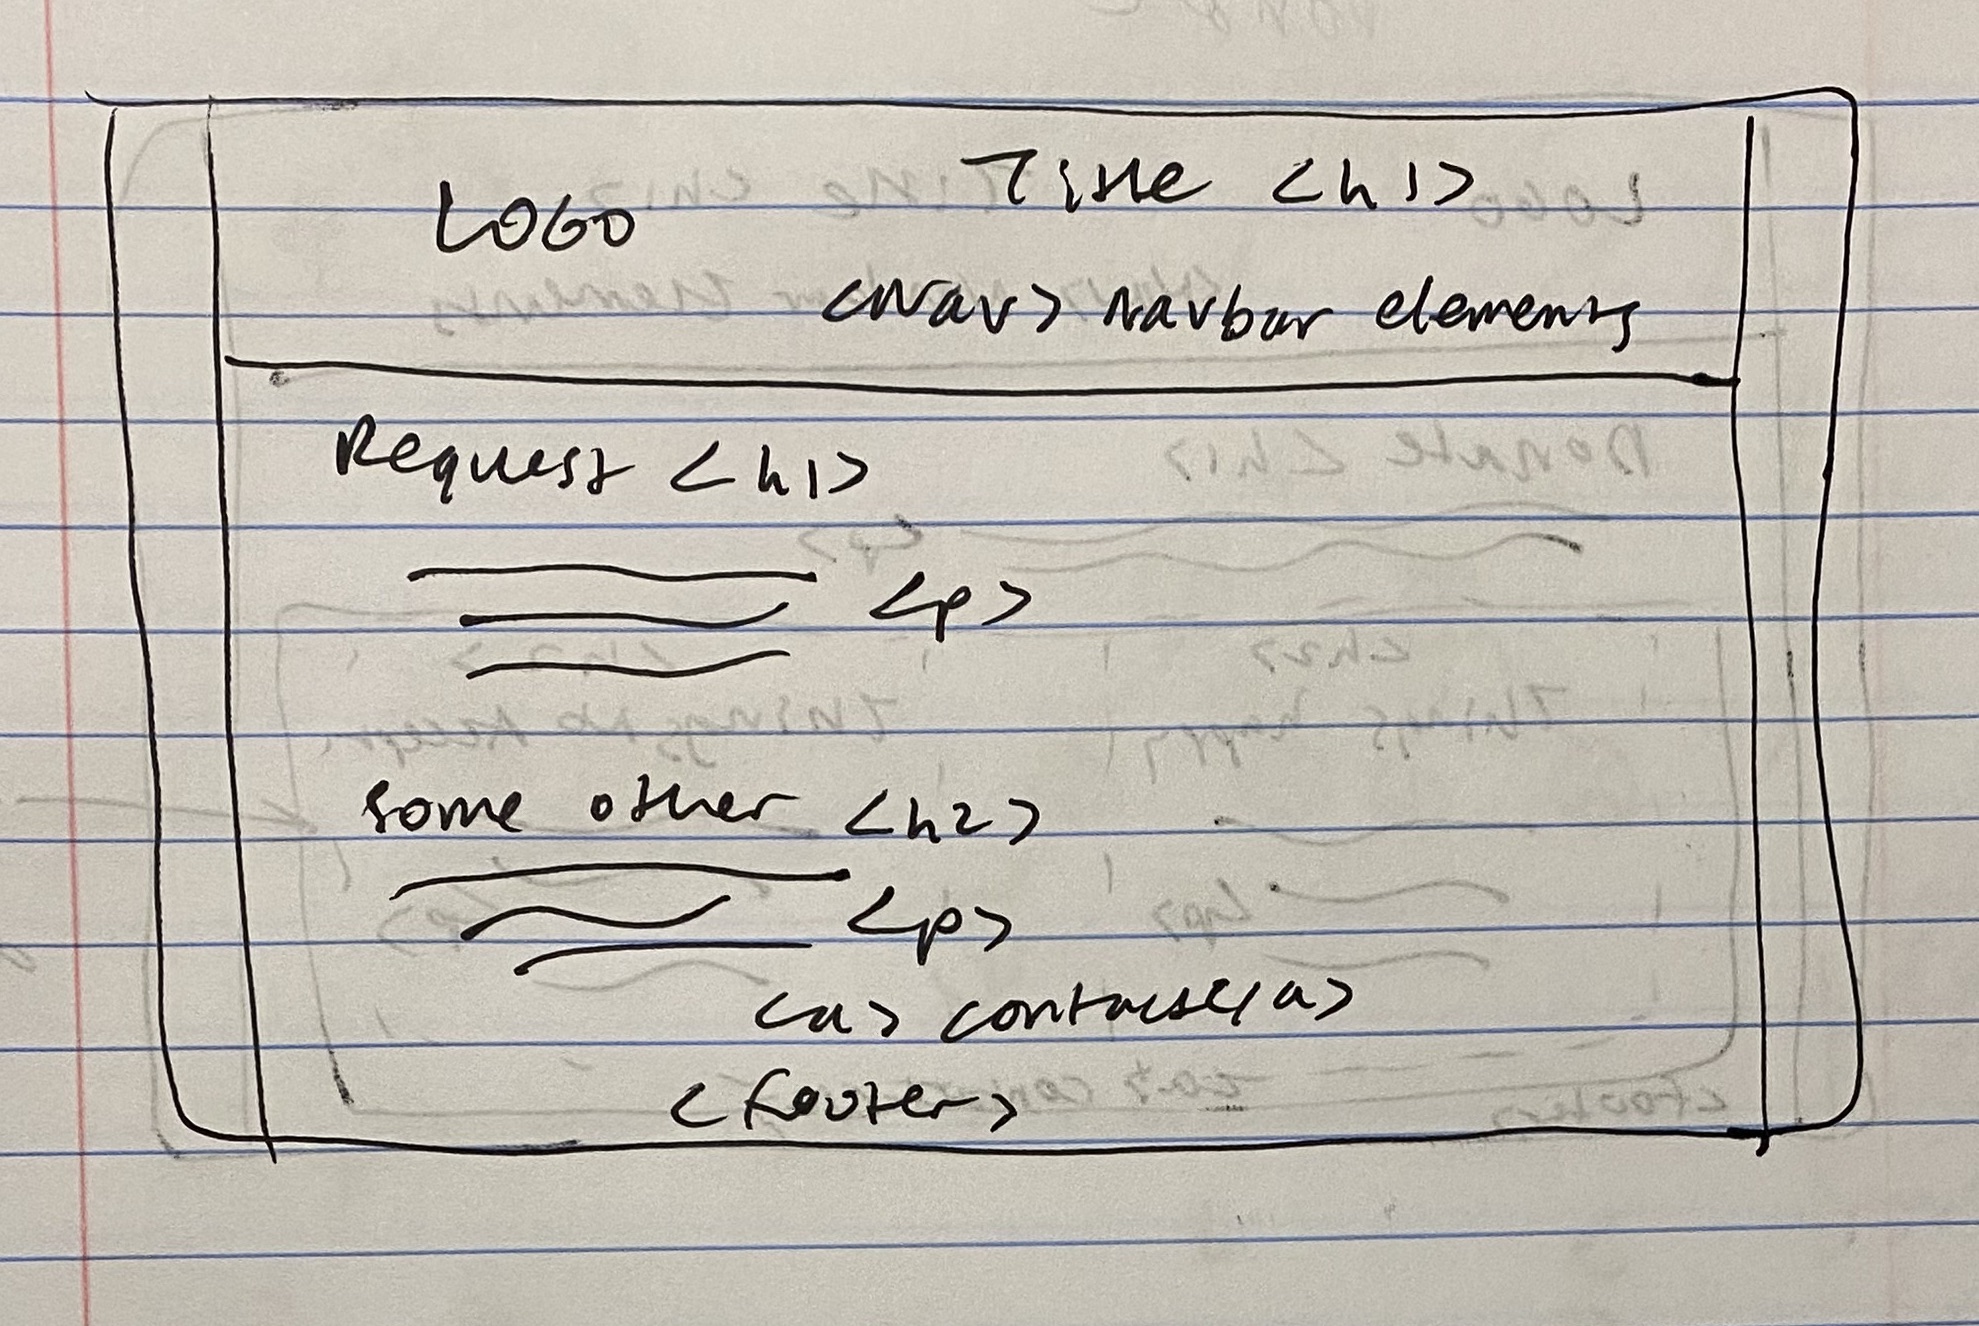 LOGO
Title <h1>
<Nav> Navbar elements
Request <h1>
<p>
some other <h2>
<p>
<a> contact</a>
<footer>